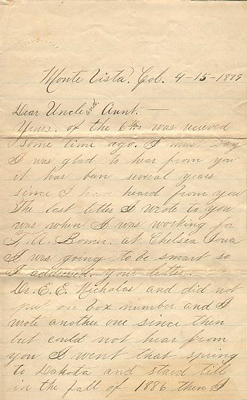 Monte Vista. Col. 4-15-1889
Dear Uncle and Aunt.—
Yours. of the 6th was recieved
some time ago. I was
I was glad to hear from you
it has ben several years
since I heard from you
The last letter I wrote to you
was when I was working for
at Chelsea Iowa
I was going to be smart so
I addressed your letter.
Dr. E. E. Nicholas and did not
put on box number and I
wrote another one since then
but could not hear from
you I went that spring
to Dakota and staid till
in the fall of 1886 then I